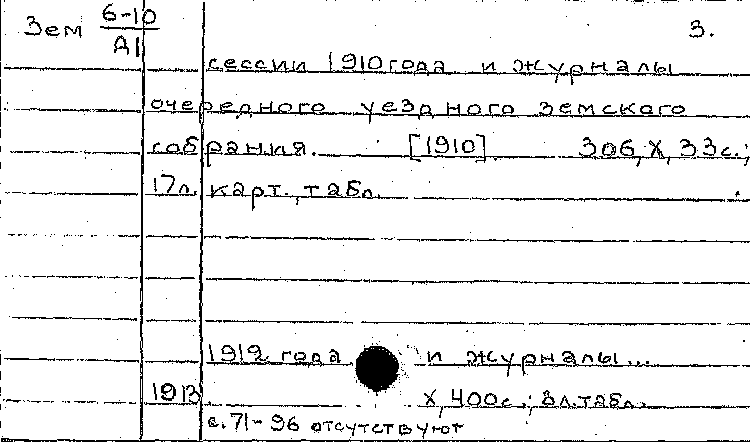 Зем 6-10 3.
А1
сессии 1910 года и журналы
очередного уездного земского
собрания. [1910] 306, X, 33 с.;
17 л. карт., табл.
1912 года и журналы...
1913 X, 400 с.; 8 л. табл.
с. 71-96 отсутствуют